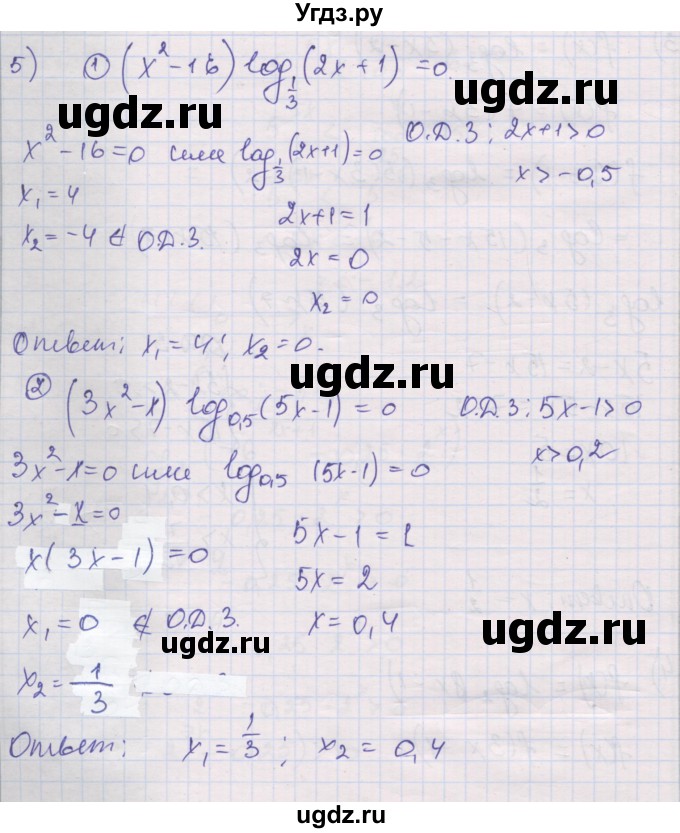 Угдз.ру
5) ① (x²-16) log_{1/3}(2x+1) =0.
ugdz.ru ugdz.ru
x²-16=0 или log_{1/3}(2x+1)=0 О.Д.З: 2x+1>0
x₁=4 2x+1=1 x>-0,5
x₂=-4 ∉ О.Д.З. 2x=0
x₂=0
ugdz.ru
Ответ: x₁=4; x₂=0.
ugdz.ru
② (3x²-x) log_{0,5}(5x-1)=0 О.Д.З: 5x-1>0
3x²-x=0 или log_{0,5}(5x-1)=0 x>0,2
ugdz.ru
3x²-x=0 5x-1=1
x(3x-1)=0 5x=2
x₁=0 ∉ О.Д.З. x=0,4
ugdz.ru ugdz.ru
x₂=1/3
Ответ: x₁=1/3; x₂=0,4
ugdz.ru
ugdz.ru